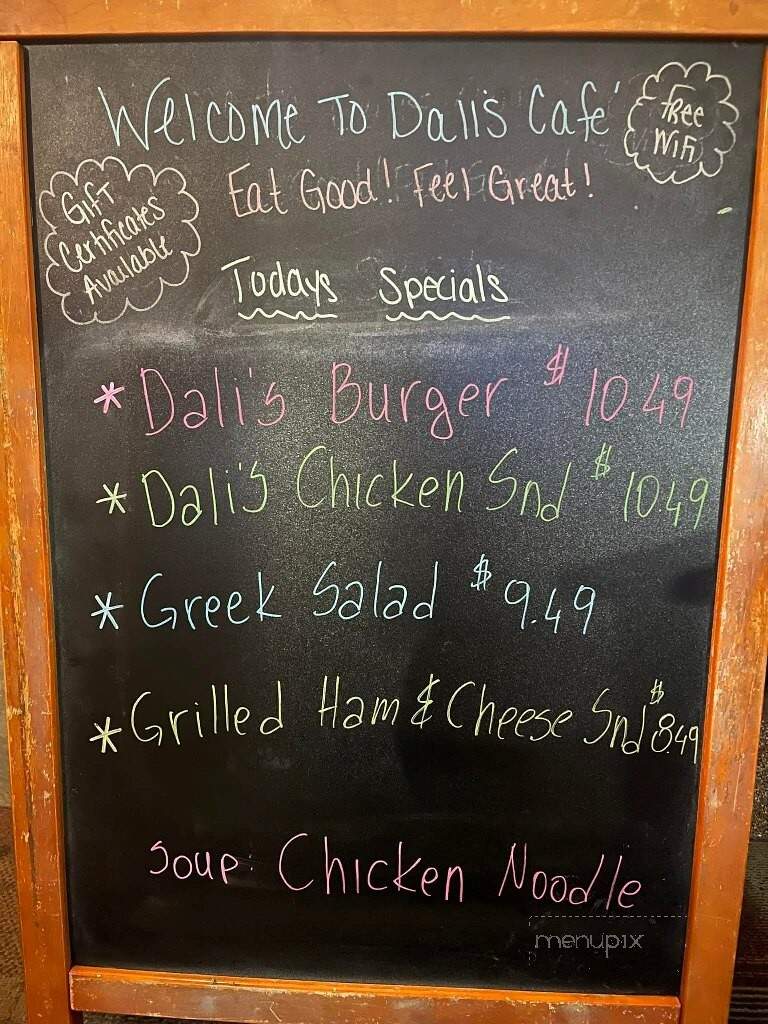 Welcome To Dali's Café
Free
Wifi
Eat Good! Feel Great!
Gift
Certificates
Available
Todays Specials
* Dali's Burger $10.49
* Dali's Chicken Snd $10.49
* Greek Salad $9.49
* Grilled Ham & Cheese Snd $8.49
Soup: Chicken Noodle
menupix